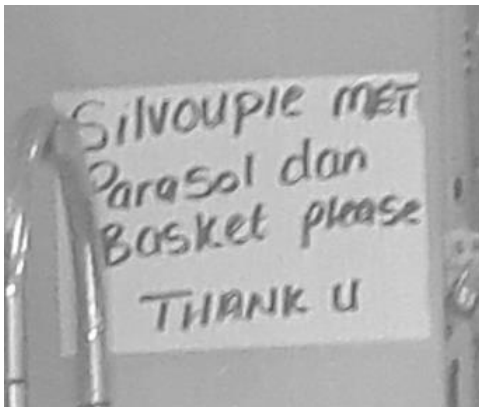 Silvouple MET
Parasol dan
Basket please
THANK U